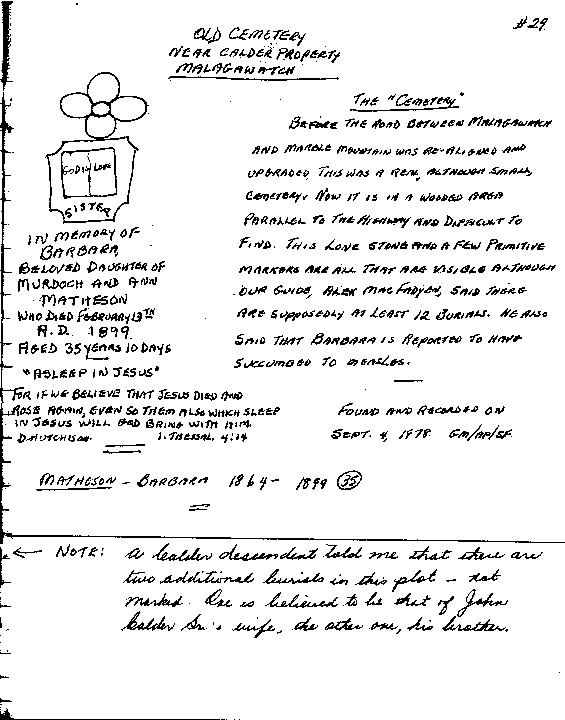 #29
OLD CEMETERY
NEAR CALDER PROPERTY
MALAGAWATCH
GOD IS LOVE
SISTER
IN MEMORY OF
BARBARA,
BELOVED DAUGHTER OF
MURDOCH AND ANN
MATHESON
WHO DIED FEBRUARY 13TH
A.D. 1899
AGED 35 YEARS 10 DAYS
"ASLEEP IN JESUS"
FOR IF WE BELIEVE THAT JESUS DIED AND
ROSE AGAIN, EVEN SO THEM ALSO WHICH SLEEP
IN JESUS WILL GOD BRING WITH HIM.
D. HUTCHISON. 1. THESSAL. 4:14
THE "CEMETERY"
BEFORE THE ROAD BETWEEN MALAGAWATCH
AND MARBLE MOUNTAIN WAS RE-ALIGNED AND
UPGRADED THIS WAS A REAL, ALTHOUGH SMALL,
CEMETERY. NOW IT IS IN A WOODED AREA
PARALLEL TO THE HIGHWAY AND DIFFICULT TO
FIND. THIS LONE STONE AND A FEW PRIMITIVE
MARKERS ARE ALL THAT ARE VISIBLE ALTHOUGH
OUR GUIDE, ALEX MACFADYEN, SAID THERE
ARE SUPPOSEDLY AT LEAST 12 BURIALS. HE ALSO
SAID THAT BARBARA IS REPORTED TO HAVE
SUCCUMBED TO MEASLES.
FOUND AND RECORDED ON
SEPT. 4, 1978 GM/AP/SF
MATHESON - BARBARA 1864 - 1899 35
← NOTE: A Calder descendent told me that there are
two additional burials in this plot - not
marked. One is believed to be that of John
Calder Sr.'s wife, the other one, his brother.